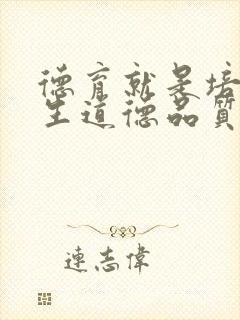 德育就是培
生道德品質
連志偉